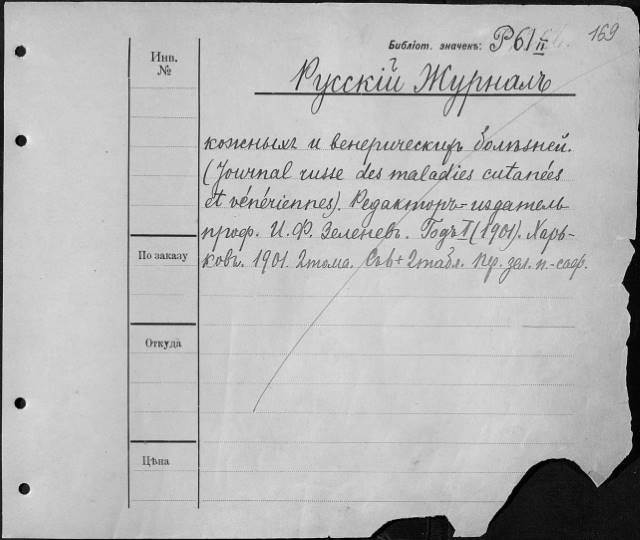 169
Библіот. значекъ: Р61 II
Инв.
№
Русскій Журналъ
кожныхъ и венерическихъ болѣзней.
(Journal russe des maladies cutanées
et vénériennes). Редакторъ-издатель
проф. И. Ф. Зеленевъ. Годъ I (1901). Харь-
По заказу
ковъ. 1901. 2 тома. + 2 табл. Кр. зел. п.-саф.
Откуда
Цѣна